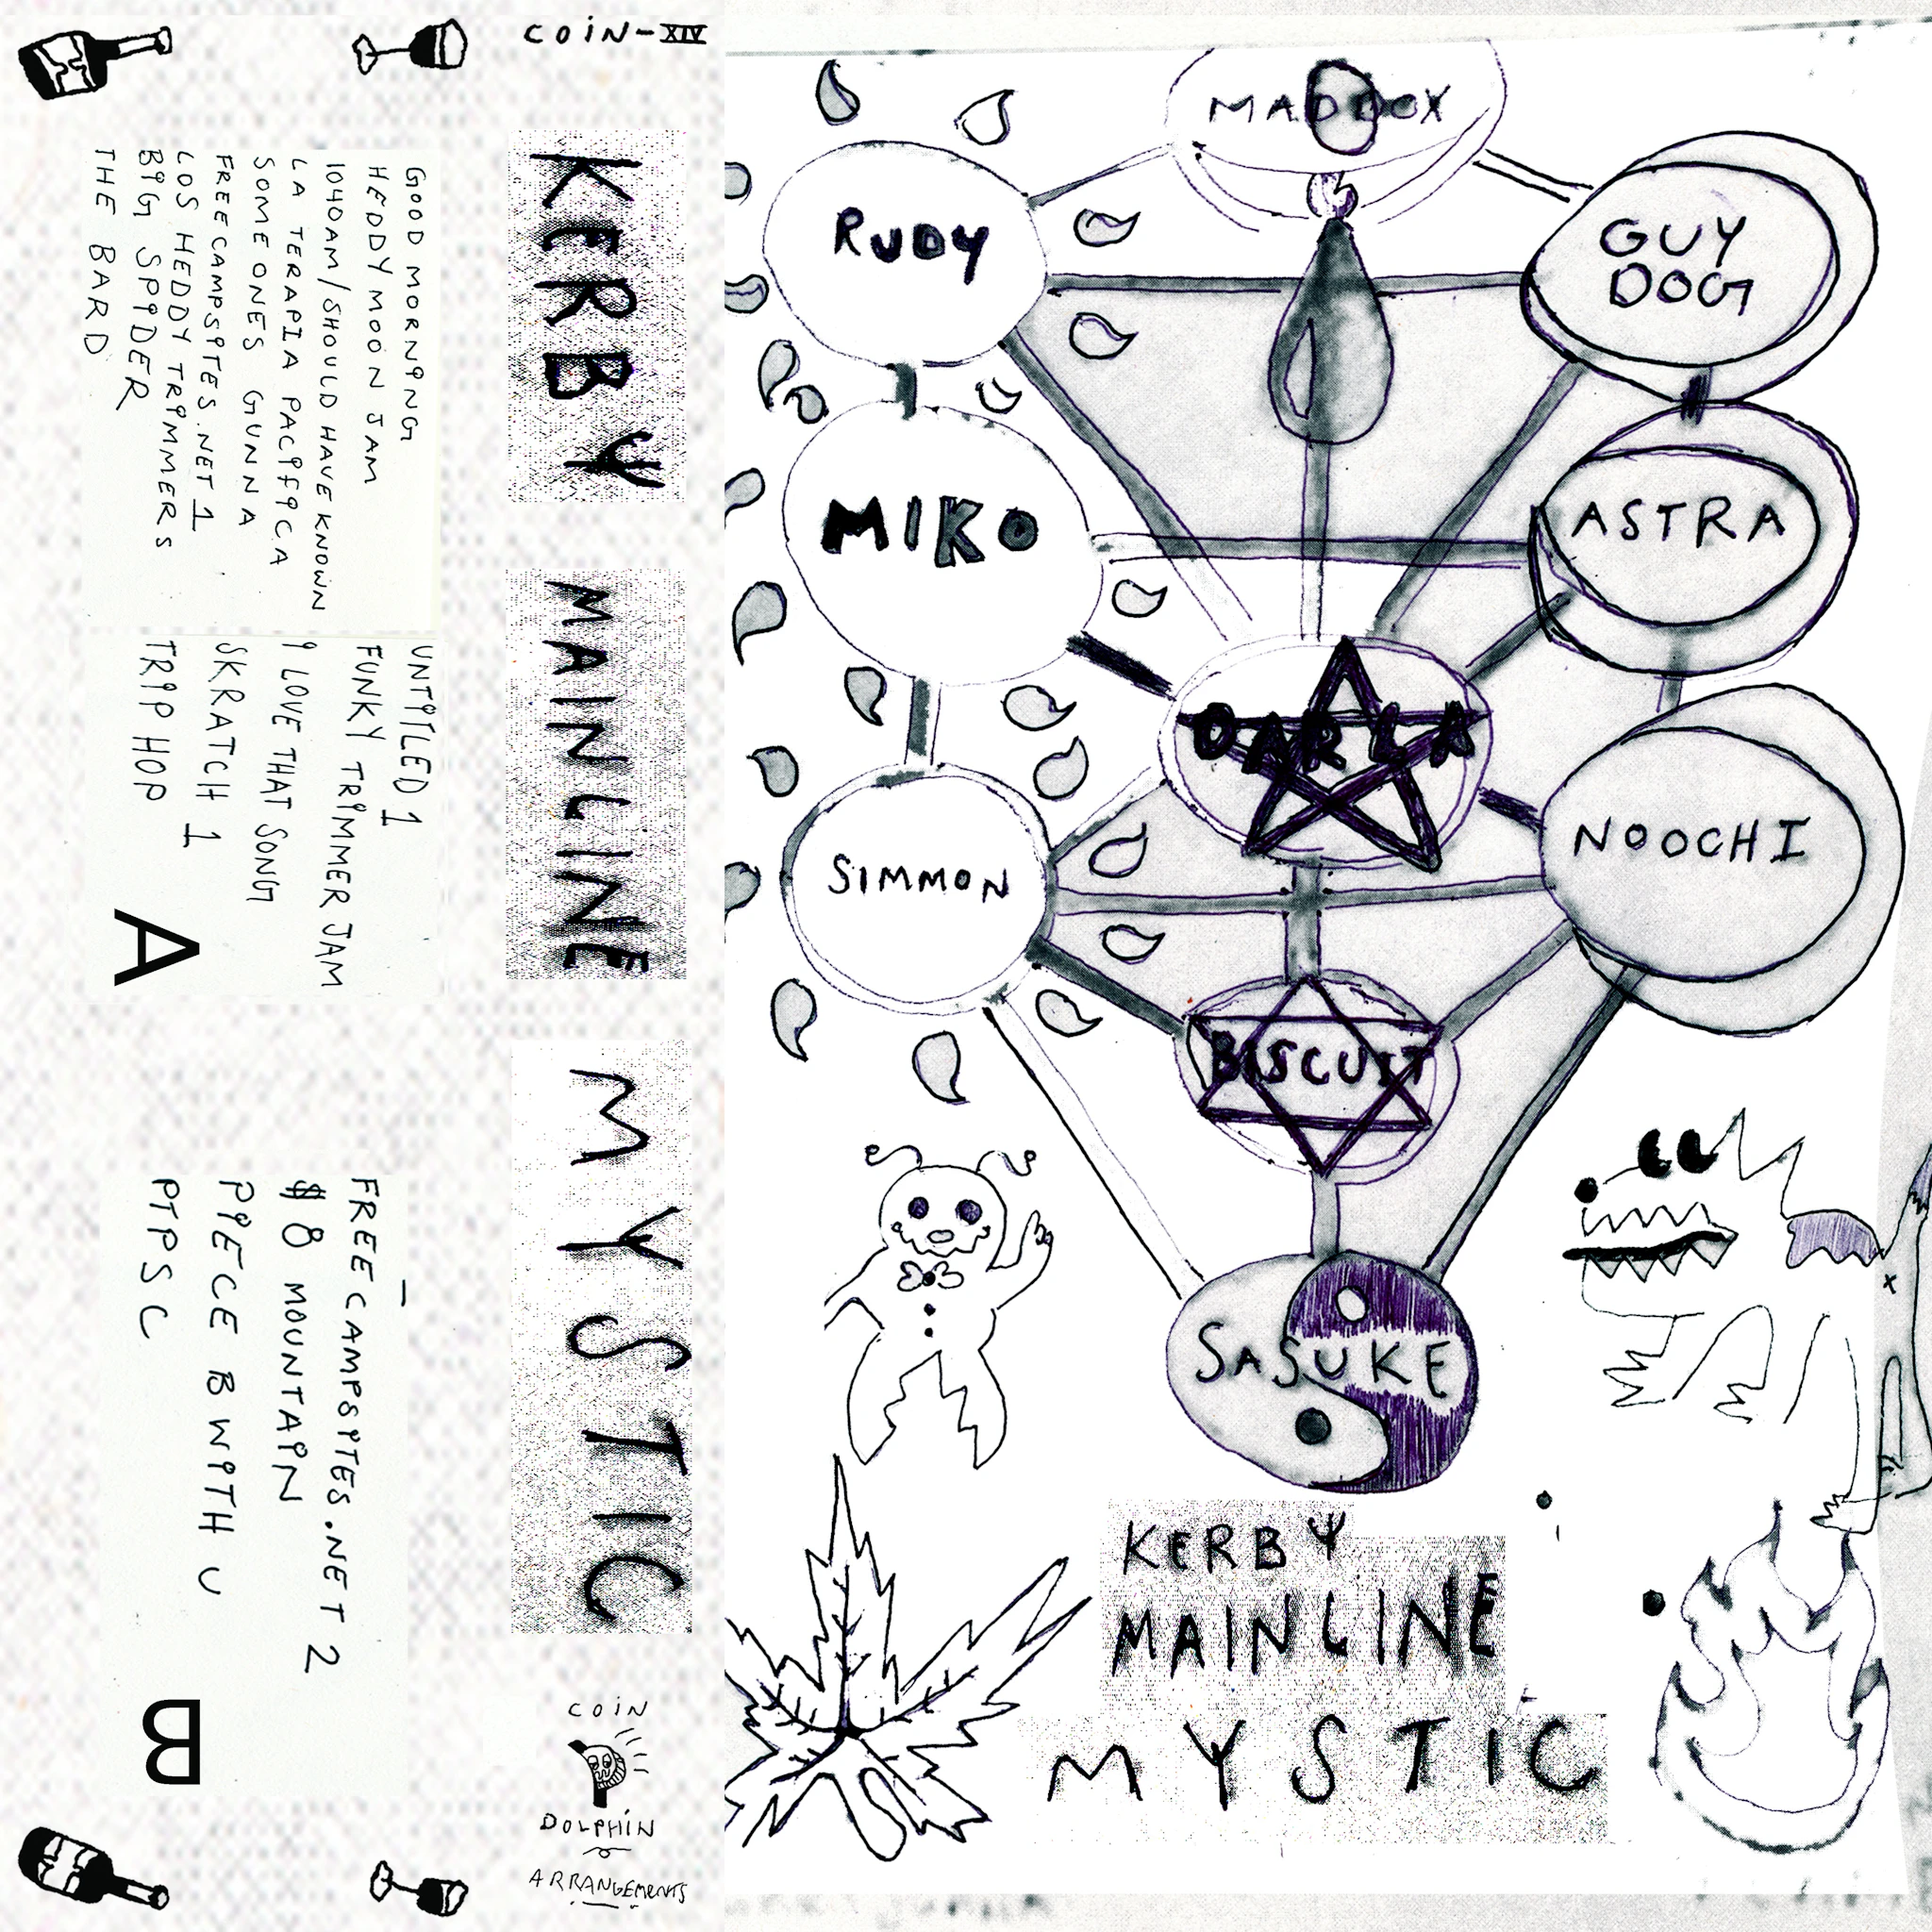 COIN-XIV
GOOD MORNING
HEDDY MOON JAM
1040AM/SHOULD HAVE KNOWN
LA TERAPIA PACIFICA
SOME ONES GUNNA
FREECAMPSITES.NET 1
LOS HEDDY TRIMMERS
BIG SPIDER
THE BARD
UNTITLED 1
FUNKY TRIMMER JAM
I LOVE THAT SONG
SKRATCH 1
TRIP HOP
A
FREECAMPSITES.NET 2
$8 MOUNTAIN
PIECE B WITH U
PTPSC
B
KERBY
MAINLINE
MYSTIC
COIN
DOLPHIN
ARRANGEMENTS
MADDOX
RUDY
GUY
DOG
MIKO
ASTRA
DARLA
SIMMON
NOOCHI
BISCUIT
SASUKE
KERBY
MAINLINE
MYSTIC